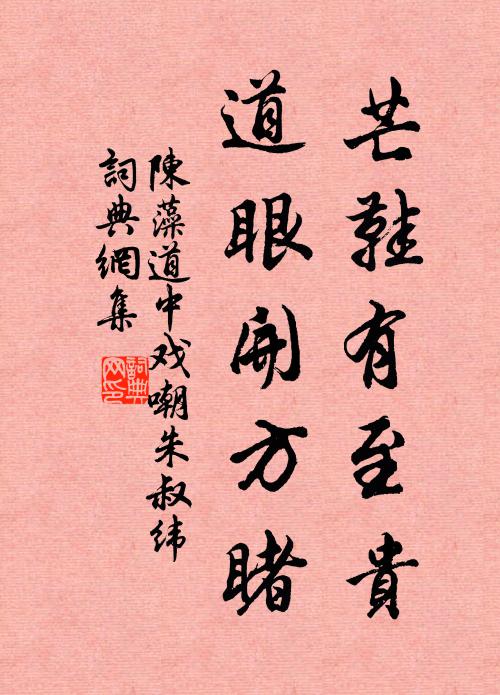 芒鞋有至貴
道眼開方睹
陳藻道中戏嘲朱叔纬
詞典網集
詞典網印